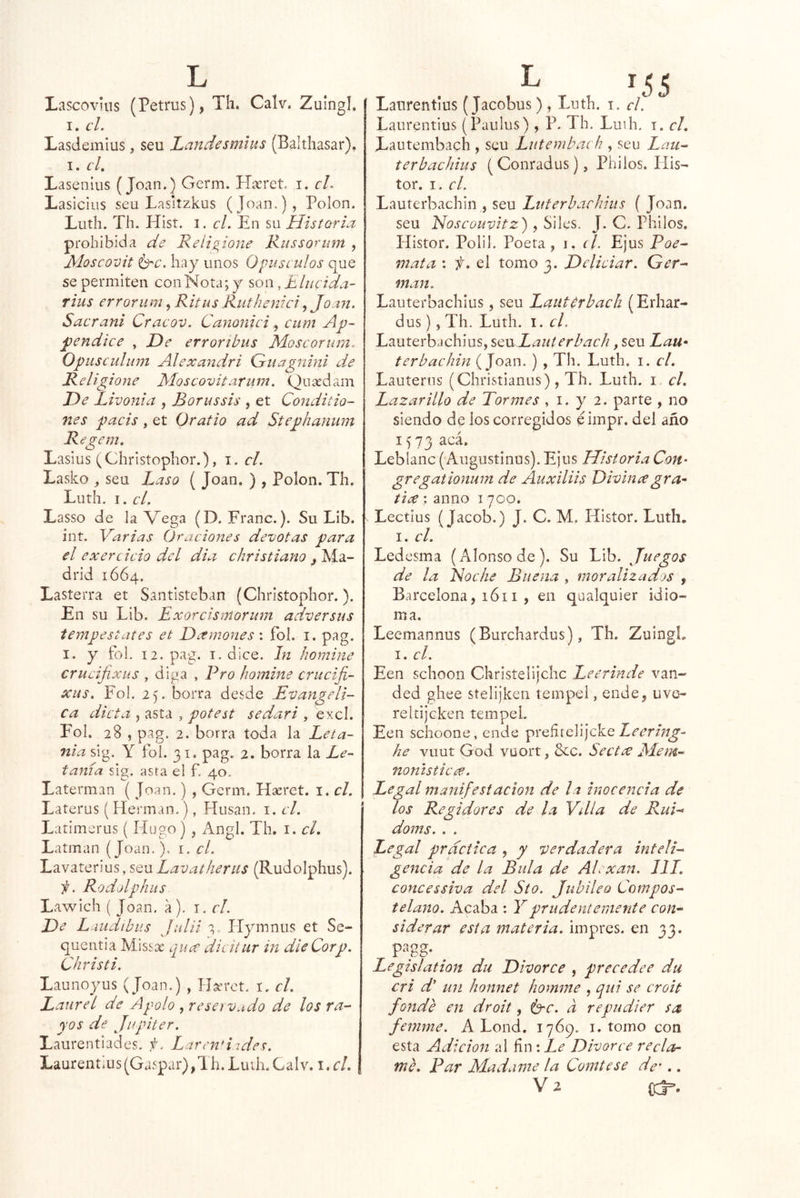 L
Lascovius (Petrus), Th. Calv. Zuingl.
1. cl.
Lasdemius, seu Landesmius (Balthasar).
1. cl.
Lasenius (Joan.) Germ. Hæret. 1. cl.
Lasicius seu Lasitzkus (Joan.), Polon.
Luth. Th. Hist. 1. cl. En su Historia
prohibida de Religione Russorum,
Moscovit &c. hay unos Opusculos que
se permiten con Nota; y son, Elucida-
rius errorum, Ritus Ruthenici, Joan.
Sacrani Cracov. Canonici, cum Ap-
pendice, De erroribus Moscorum.
Opusculum Alexandri Guagnini de
Religione Moscovitarum. Quædam
De Livonia, Borussis, et Conditio-
nes pacis, et Oratio ad Stephanum
Regem.
Lasius (Christophor.), 1. cl.
Lasko, seu Laso (Joan.), Polon. Th.
Luth. 1. cl.
Lasso de la Vega (D. Franc.). Su Lib.
int. Varias Oraciones devotas para
el exercicio del dia christiano, Ma-
drid 1664.
Lasterra et Santisteban (Christophor.).
En su Lib. Exorcismorum adversus
tempestates et Dæmones: fol. 1. pag.
1. y fol. 12. pag. 1. dice. In homine
crucifixus, diga, Pro homine crucifi-
xus. Fol. 25. borra desde Evangeli-
ca dicta, asta, potest sedari, excl.
Fol. 28, pag. 2. borra toda la Leta-
nia sig. Y fol. 31. pag. 2. borra la Le-
tanía sig. asta el f. 40.
Laterman (Joan.), Germ. Hæret. 1. cl.
Laterus (Herman.), Husan. 1. cl.
Latimerus (Hugo), Angl. Th. 1. cl.
Latman (Joan.). 1. cl.
Lavaterius, seu Lavatherus (Rudolphus).
℣. Rodolphus
Lawich (Joan. à). 1. cl.
De Laudibus Julii 3. Hymnus et Se-
quentia Missæ quæ dicitur in die Corp.
Christi.
Launoyus (Joan.), Hæret. 1. cl.
Laurel de Apolo, reservado de los ra-
yos de Jupiter.
Laurentiades. ℣. Larentiades.
Laurentius (Gaspar), Th. Luth. Calv. 1. cl.
L 155
Laurentius (Jacobus), Luth. 1. cl.
Laurentius (Paulus), P. Th. Luth. 1. cl.
Lautembach, seu Lutembach, seu Lau-
terbachius (Conradus), Philos. His-
tor. 1. cl.
Lauterbachin, seu Luterbachius (Joan.
seu Noscouvitz), Siles. J. C. Philos.
Histor. Polil. Poeta, 1. cl. Ejus Poe-
mata: ℣. el tomo 3. Deliciar. Ger-
man.
Lauterbachius, seu Lauterbach (Erhar-
dus), Th. Luth. 1. cl.
Lauterbachius, seu Lauterbach, seu Lau-
terbachin (Joan.), Th. Luth. 1. cl.
Lauterus (Christianus), Th. Luth. 1 cl.
Lazarillo de Tormes, 1. y 2. parte, no
siendo de los corregidos é impr. del año
1573 acá.
Leblanc (Augustinus). Ejus Historia Con-
gregationum de Auxiliis Divinæ gra-
tiæ: anno 1700.
Lectius (Jacob.) J. C. M. Histor. Luth.
1. cl.
Ledesma (Alonso de). Su Lib. Juegos
de la Noche Buena, moralizados,
Barcelona, 1611, en qualquier idio-
ma.
Leemannus (Burchardus), Th. Zuingl.
1. cl.
Een schoon Christelijchc Leerinde van-
ded ghee stelijken tempel, ende, uve-
reltijcken tempel.
Een schoone, ende prefitelijcke Leering-
he vuut God vuort, &c. Sectæ Mem-
nonisticæ.
Legal manifestacion de la inocencia de
los Regidores de la Villa de Rui-
doms...
Legal práctica, y verdadera inteli-
gencia de la Bula de Alexan. III.
concessiva del Sto. Jubileo Compos-
telano. Acaba: Y prudentemente con-
siderar esta materia. impres. en 33.
pagg.
Legislation du Divorce, precedee du
cri d' un honnet homme, qui se croit
fondè en droit, &c. à repudier sa
femme. A Lond. 1769. 1. tomo con
esta Adicion al fin: Le Divorce recla-
mè. Par Madame la Comtese de...
V 2 ☞.